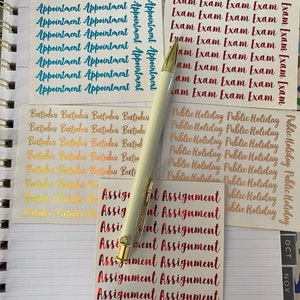 Appointment Appointment
Appointment Appointment
Appointment Appointment
Appointment Appointment
Appointment Appointment
Exam Exam Exam Exam
Exam Exam Exam Exam
Exam Exam Exam Exam
Exam Exam Exam Exam
Exam Exam Exam Exam
Birthday Birthday Birthday Birthday
Birthday Birthday Birthday Birthday
Birthday Birthday Birthday Birthday
Birthday Birthday Birthday Birthday
Birthday Birthday Birthday Birthday
Birthday Birthday Birthday Birthday
Birthday Birthday Birthday Birthday
Public Holiday Public Holiday
Public Holiday Public Holiday
Public Holiday Public Holiday
Public Holiday Public Holiday
Public Holiday Public Holiday
Public Holiday Public Holiday
Public Holiday Public Holiday
Assignment Assignment
Assignment Assignment
Assignment Assignment
Assignment Assignment
Assignment Assignment
Assignment Assignment
OCT
NOV